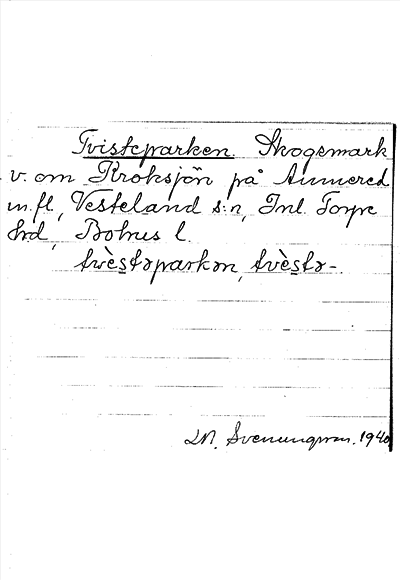 Tvisteparken. Skogsmark
v. om Kroksjön på Anneröd
m. fl., Vesteland s:n, Inl. Torpe
hd, Bohus l.
twèstəparkən, tvèstə-.
1940